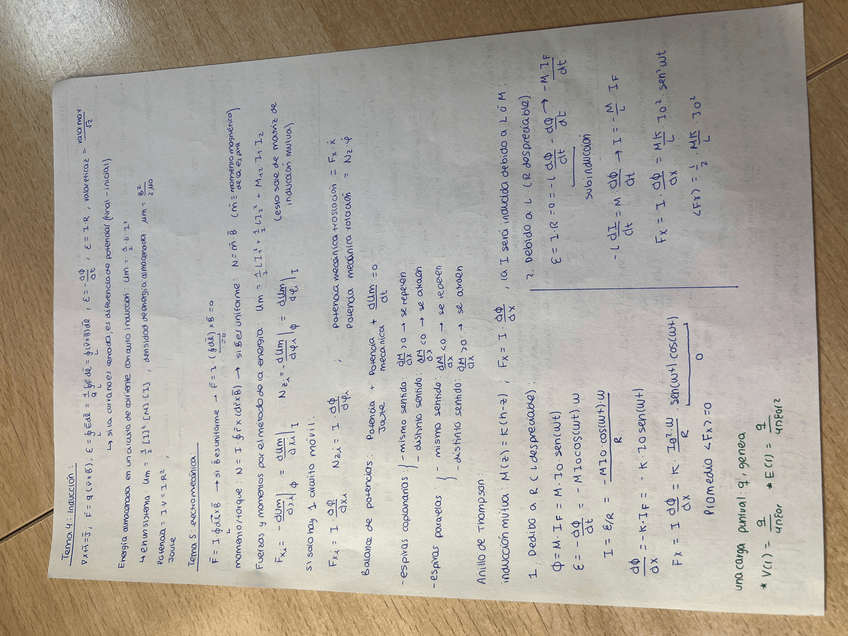 Tema 4: Inducción:
∇x H̄ = J̄ ; F̄ = q(v̄ x B̄), ℰ = ∮ Ē dℓ̄ = 1/q ∮ F̄ dℓ̄ = ∮ (v̄ x B̄) dℓ̄ ; ℰ = - dϕ/dt ; ℰ = I·R ; valor eficaz = valor max/√2
↳ si la curva no es cerrada, es diferencia de potencial (final - inicial)
Energía almacenada en un circuito de corriente con auto inducción: Um = 1/2 L·I²
↳ en un sistema Um = 1/2 [I]ᵗ [M] [I] , densidad de energía almacenada um = B²/2μ0
Potencia = I·V = I·R²,
Joule
Tema 5: electromecánica
F̄ = I ∮ dℓ̄ x B̄ → si B es uniforme → F̄ = I·(∮ dℓ̄) x B̄ = 0
= 0
momento/torque: N̄ = I ∮ r̄ x (dℓ̄ x B̄) → si B es uniforme: N̄ = m̄ B̄ (m̄ = momento magnético)
de la espira
Fuerzas y momentos por el método de la energía: Um = 1/2 L I₁² + 1/2 L I₂² + M₁₂ I₁ I₂
Fxi = - dUm/dxi |ϕ = dUm/dxi |I Nzi = - dUm/dφi |ϕ = dUm/dφi |I (esto sale de matriz de
inducción mutua)
si solo hay 1 circuito móvil:
Fxi = I dϕ/dxi Nzi = I dϕ/dφi ; potencia mecánica traslación = Fx·ẋ
Potencia mecánica rotación = Nz·φ̇
Balance de potencias: Potencia Joule + Potencia mecánica + dUm/dt = 0
- espiras coplanarias } - mismo sentido: dM/dx > 0 → se repelen
- distinto sentido: dM/dx < 0 → se atraen
- espiras paralelas } - mismo sentido: dM/dx < 0 → se repelen
- distinto sentido: dM/dx > 0 → se atraen
Anillo de Thompson:
inducción mutua: M(z) = K(h-z) ; Fx = I dϕ/dx , la I será inducida debido a L ó M:
1. Debido a R (L despreciable):
ϕ = M·IF = M·I0·sen(ωt)
ℰ = - dϕ/dt = - M I0 cos(ωt) ω
I = ℰ/R = - M I0·cos(ωt)·ω/R
dϕ/dx = -K·IF = - K·I0 sen(ωt)
Fx = I dϕ/dx = K· I0² ω/R sen(ωt) cos(ωt)
0
Promedio <Fx> = 0
2. Debido a L (R despreciable)
ℰ = I·R = 0 = -L dϕ/dt - dϕ/dt → -M·IF/dt
subinducción
-L dI/dt = M dϕ/dt → I = - M/L IF
Fx = I· dϕ/dx = MK/L I0² sen²ωt
<Fx> = 1/2 MK/L I0²
una carga puntual q, genera
* V(r) = q/4πε0r * E(r) = q/4πε0r²